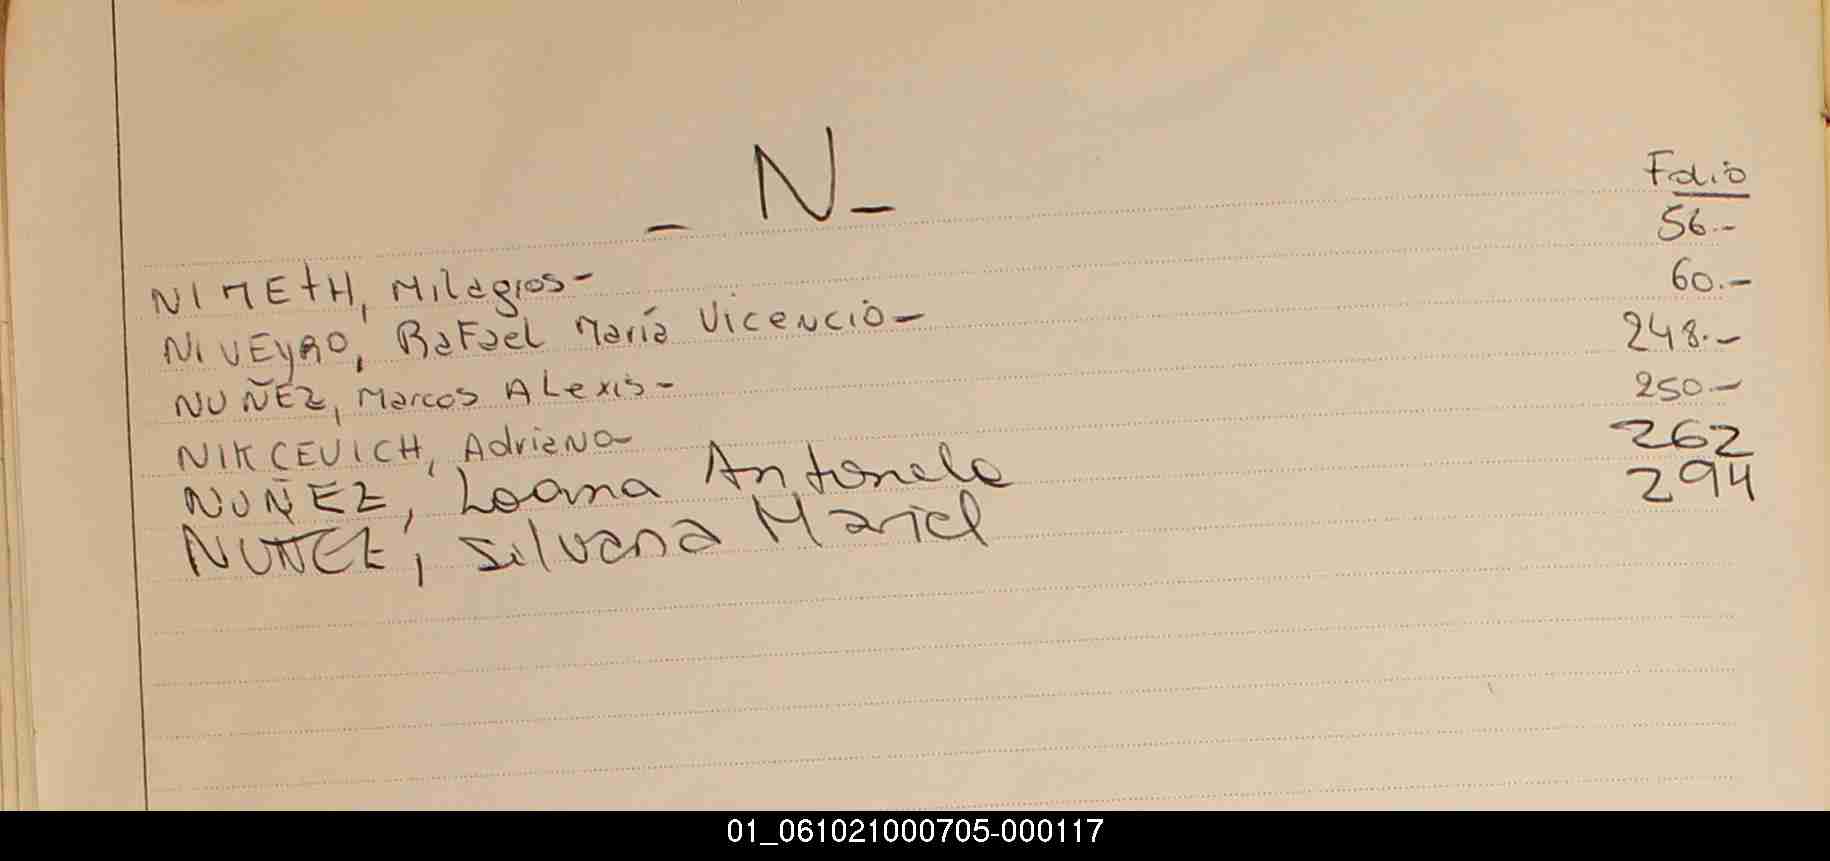 - N -
Folio
NIMETH, Milagros - 56.-
NIVEYRO, Rafael María Vicencio - 60.-
NUÑEZ, Marcos Alexis - 248.-
NIKCEVICH, Adriana 250.-
NUÑEZ, Loana Antonela 262
NUÑEZ, Silvana Mariel 294
01_061021000705-000117